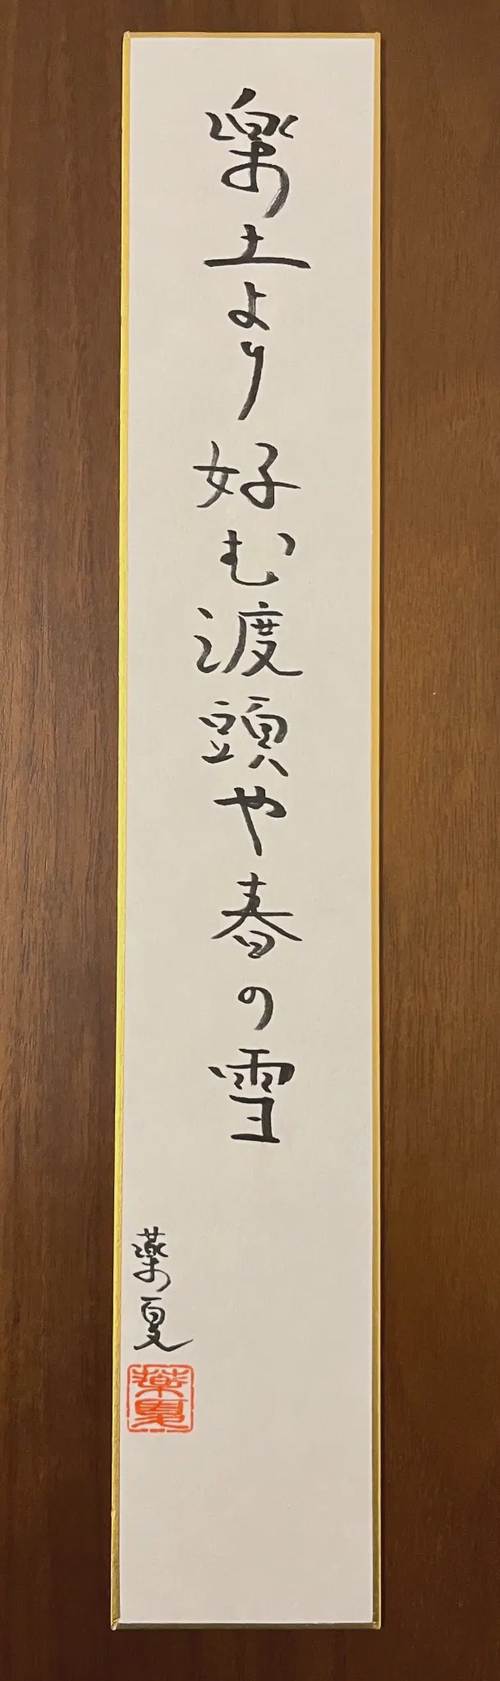 楽土より好む渡頭や春の雪
薬夏
薬夏